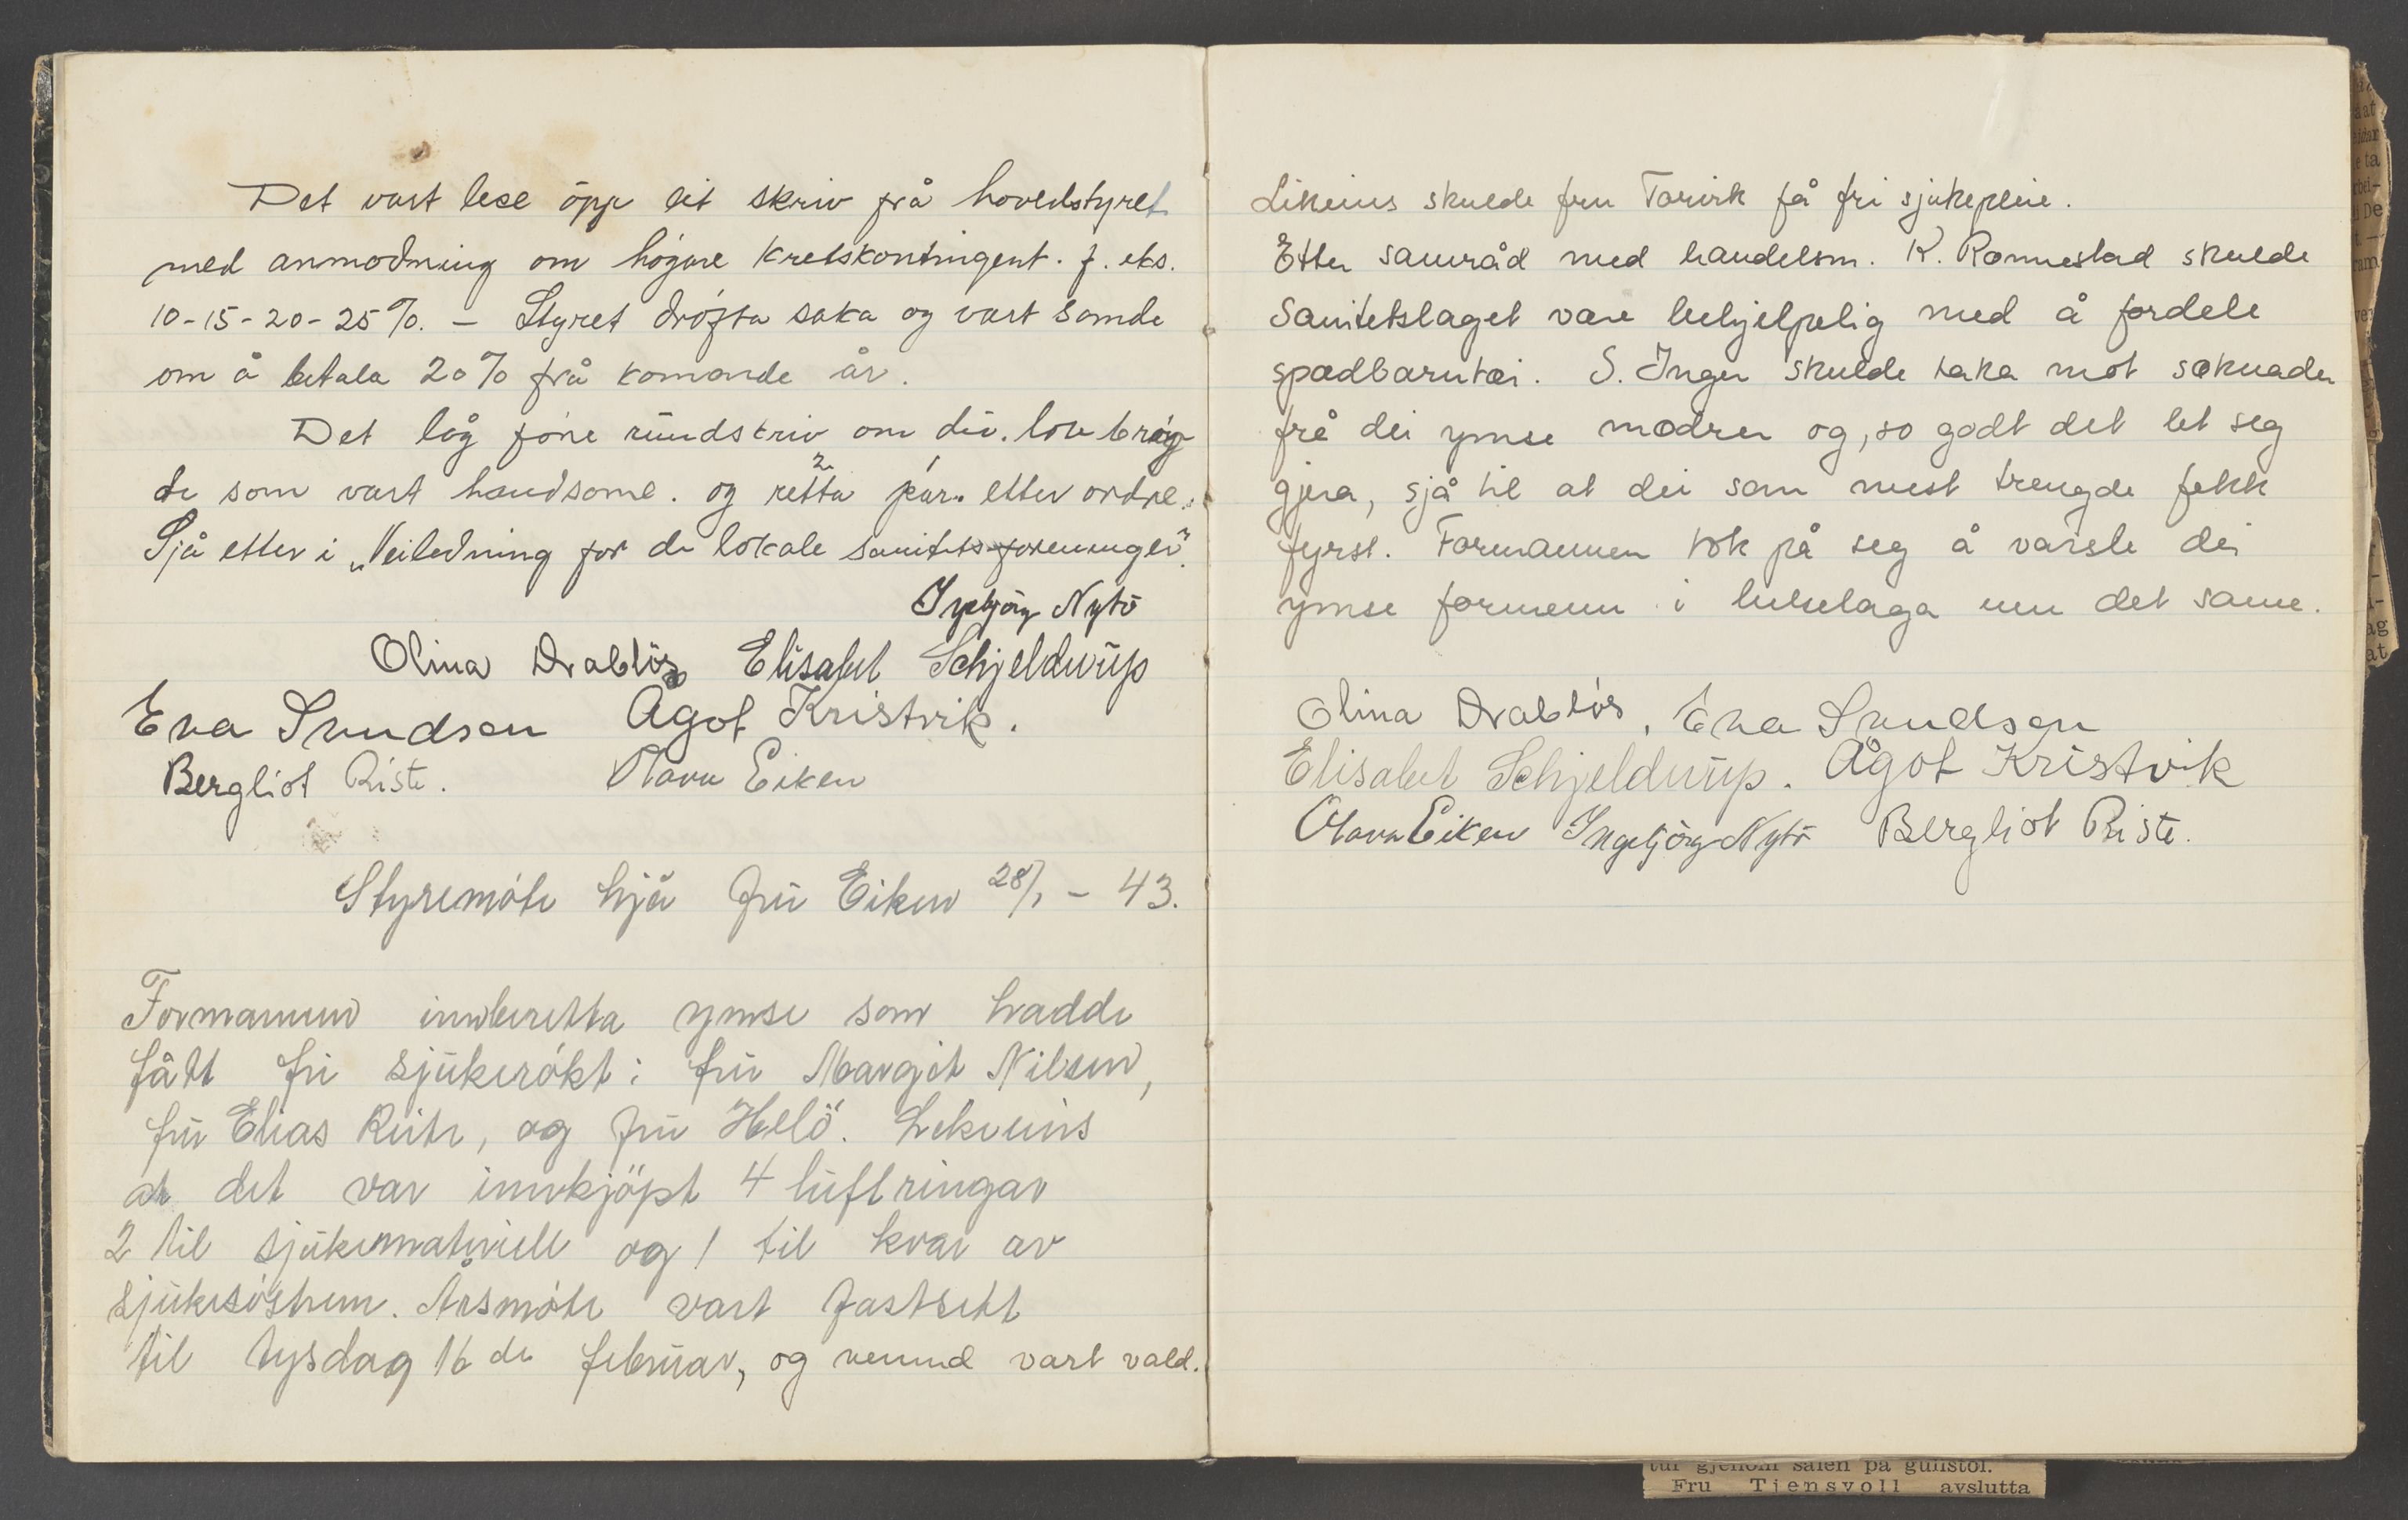 Det vart lese opp eit skriv frå hovedstyret
med anmodning om högare kretskontingent. f. eks.
10-15-20-25%. - Styret dröfta saka og vart samde
om å betala 20% frå komande år.
Det låg före rundskriv om div. lovbrög
de som vart handsome. og retta 2 par. etter ordre.
Sjå etter i „Veiledning for de lokale sanitetsforeninger".
Ingebjörg Nytö
Olina Drablös Elisabet Schjelderup
Eva Svendsen Ågot Kristvik.
Bergliot Riste. Olava Eiken
Styremöte hjå fru Eiken 28/1 - 43.
Formannen innberetta ymse som hadde
fått fri sjukerökt: fru Margit Nilsen,
fru Elias Riste, og fru Hellö. Lekeeins
at det var innkjöpt 4 luftringar
2 til sjukemateriell og 1 til kvar av
sjukesöstrene. Årsmöte vart fastsett
til tysdag 16 de februar, og nemnd vart vald.
Likeins skulde fru Torvik få fri sjukepleie.
Etter samråd med handelsm. K. Rønnestad skulde
Sanitetslaget være behjelpelig med å fordele
spædbarntøi. S. Inger skulde taka mot søknader
frå dei ymse mødrer og, so godt det let seg
gjera, sjå til at dei som mest trengde fekk
fyrst. Formannen tok på seg å varsle dei
ymse formenn i helselaga um det same.
Olina Drablös, Eva Svendsen
Elisabet Schjelderup. Ågot Kristvik
Olava Eiken Ingebjörg Nytö Bergliot Riste.
tur gjenom salen på gullstol.
Fru Tjensvoll avslutta